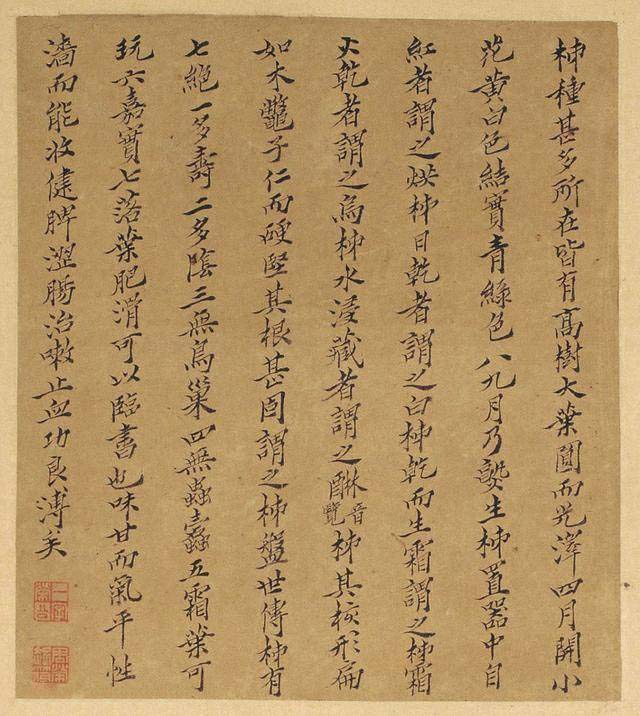 柹種甚多所在皆有高樹大葉圓而光澤四月開小
花黄白色結實青緑色八九月乃熟生柹置器中自
紅者謂之烘柹日乾者謂之白柹乾而生霜謂之柹霜
火乾者謂之烏柹水浸藏者謂之醂音覽柹其核形扁
如木鼈子仁而硬堅其根甚固謂之柹盤世傳柹有
七絶一多壽二多陰三無鳥巢四無蟲蠹五霜葉可
玩六嘉實七落葉肥滑可以臨書也味甘而氣平性
濇而能收健脾澀腸治嗽止血功良溥矣